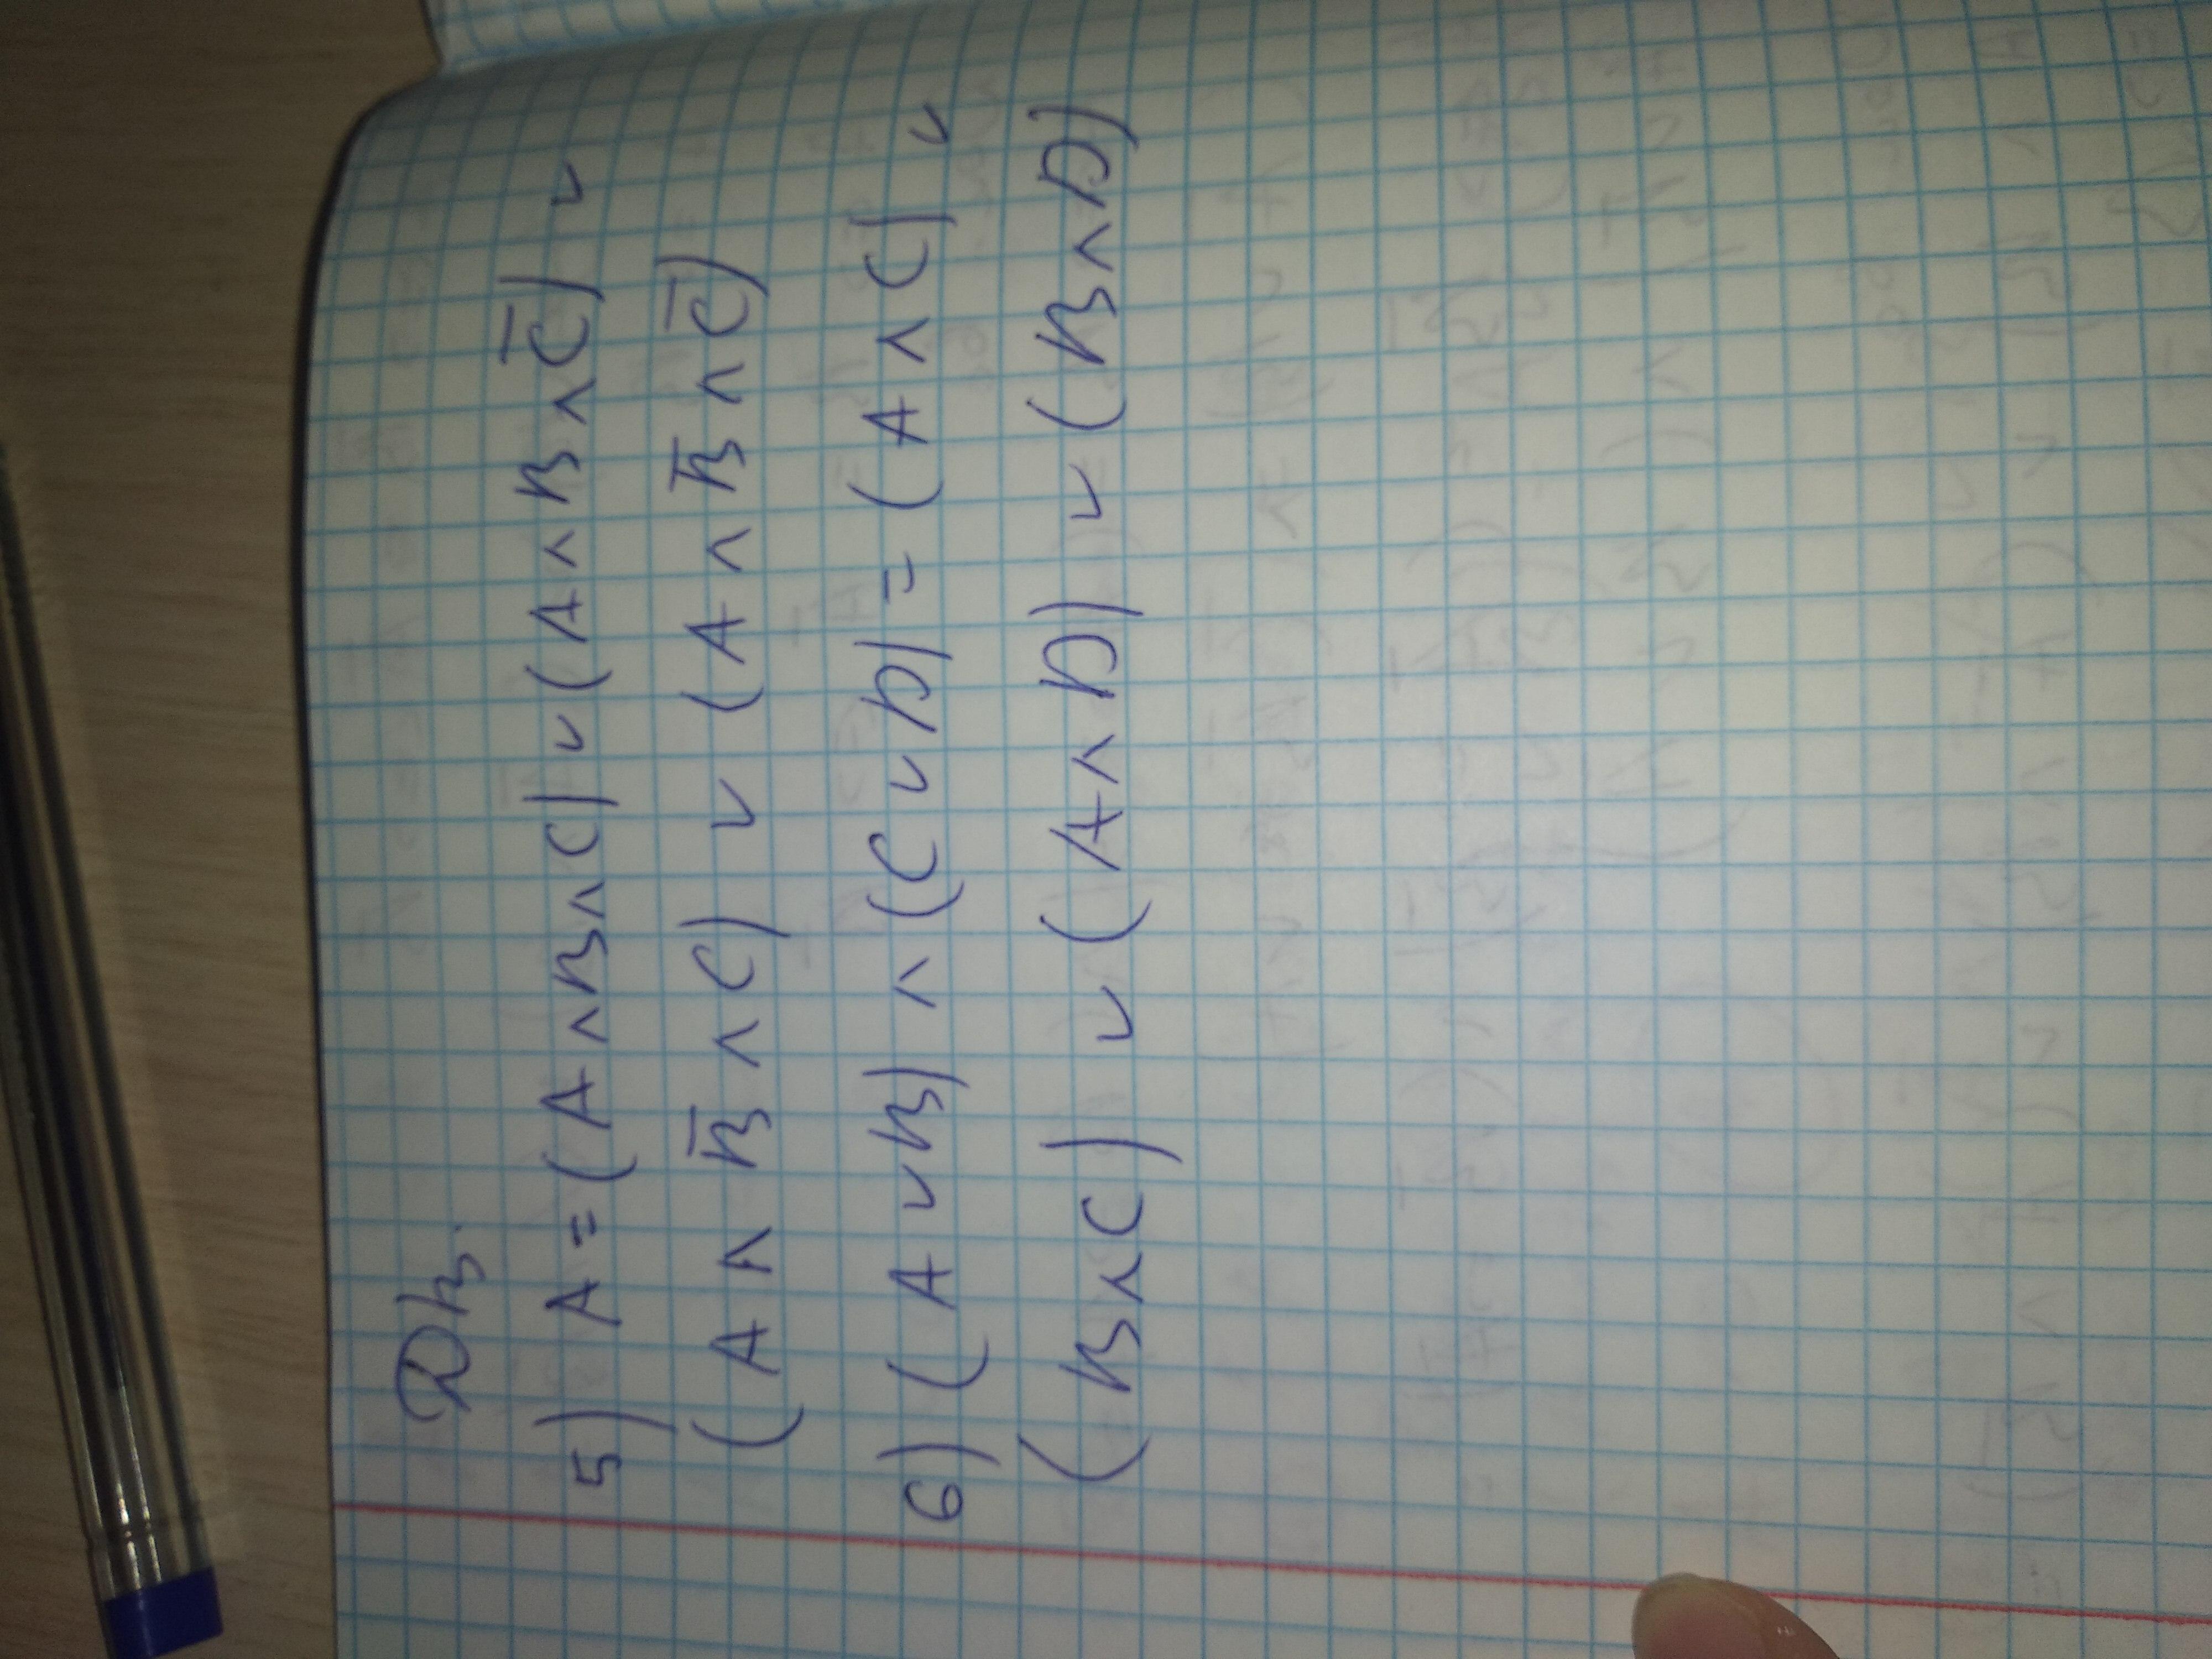 Дз.
5) A = (A ∧ B ∧ C) ∨ (A ∧ B ∧ C̅) ∨
(A ∧ B̅ ∧ C) ∨ (A ∧ B̅ ∧ C̅)
6) (A ∨ B) ∧ (C ∨ D) = (A ∧ C) ∨
(B ∧ C) ∨ (A ∧ D) ∨ (B ∧ D)